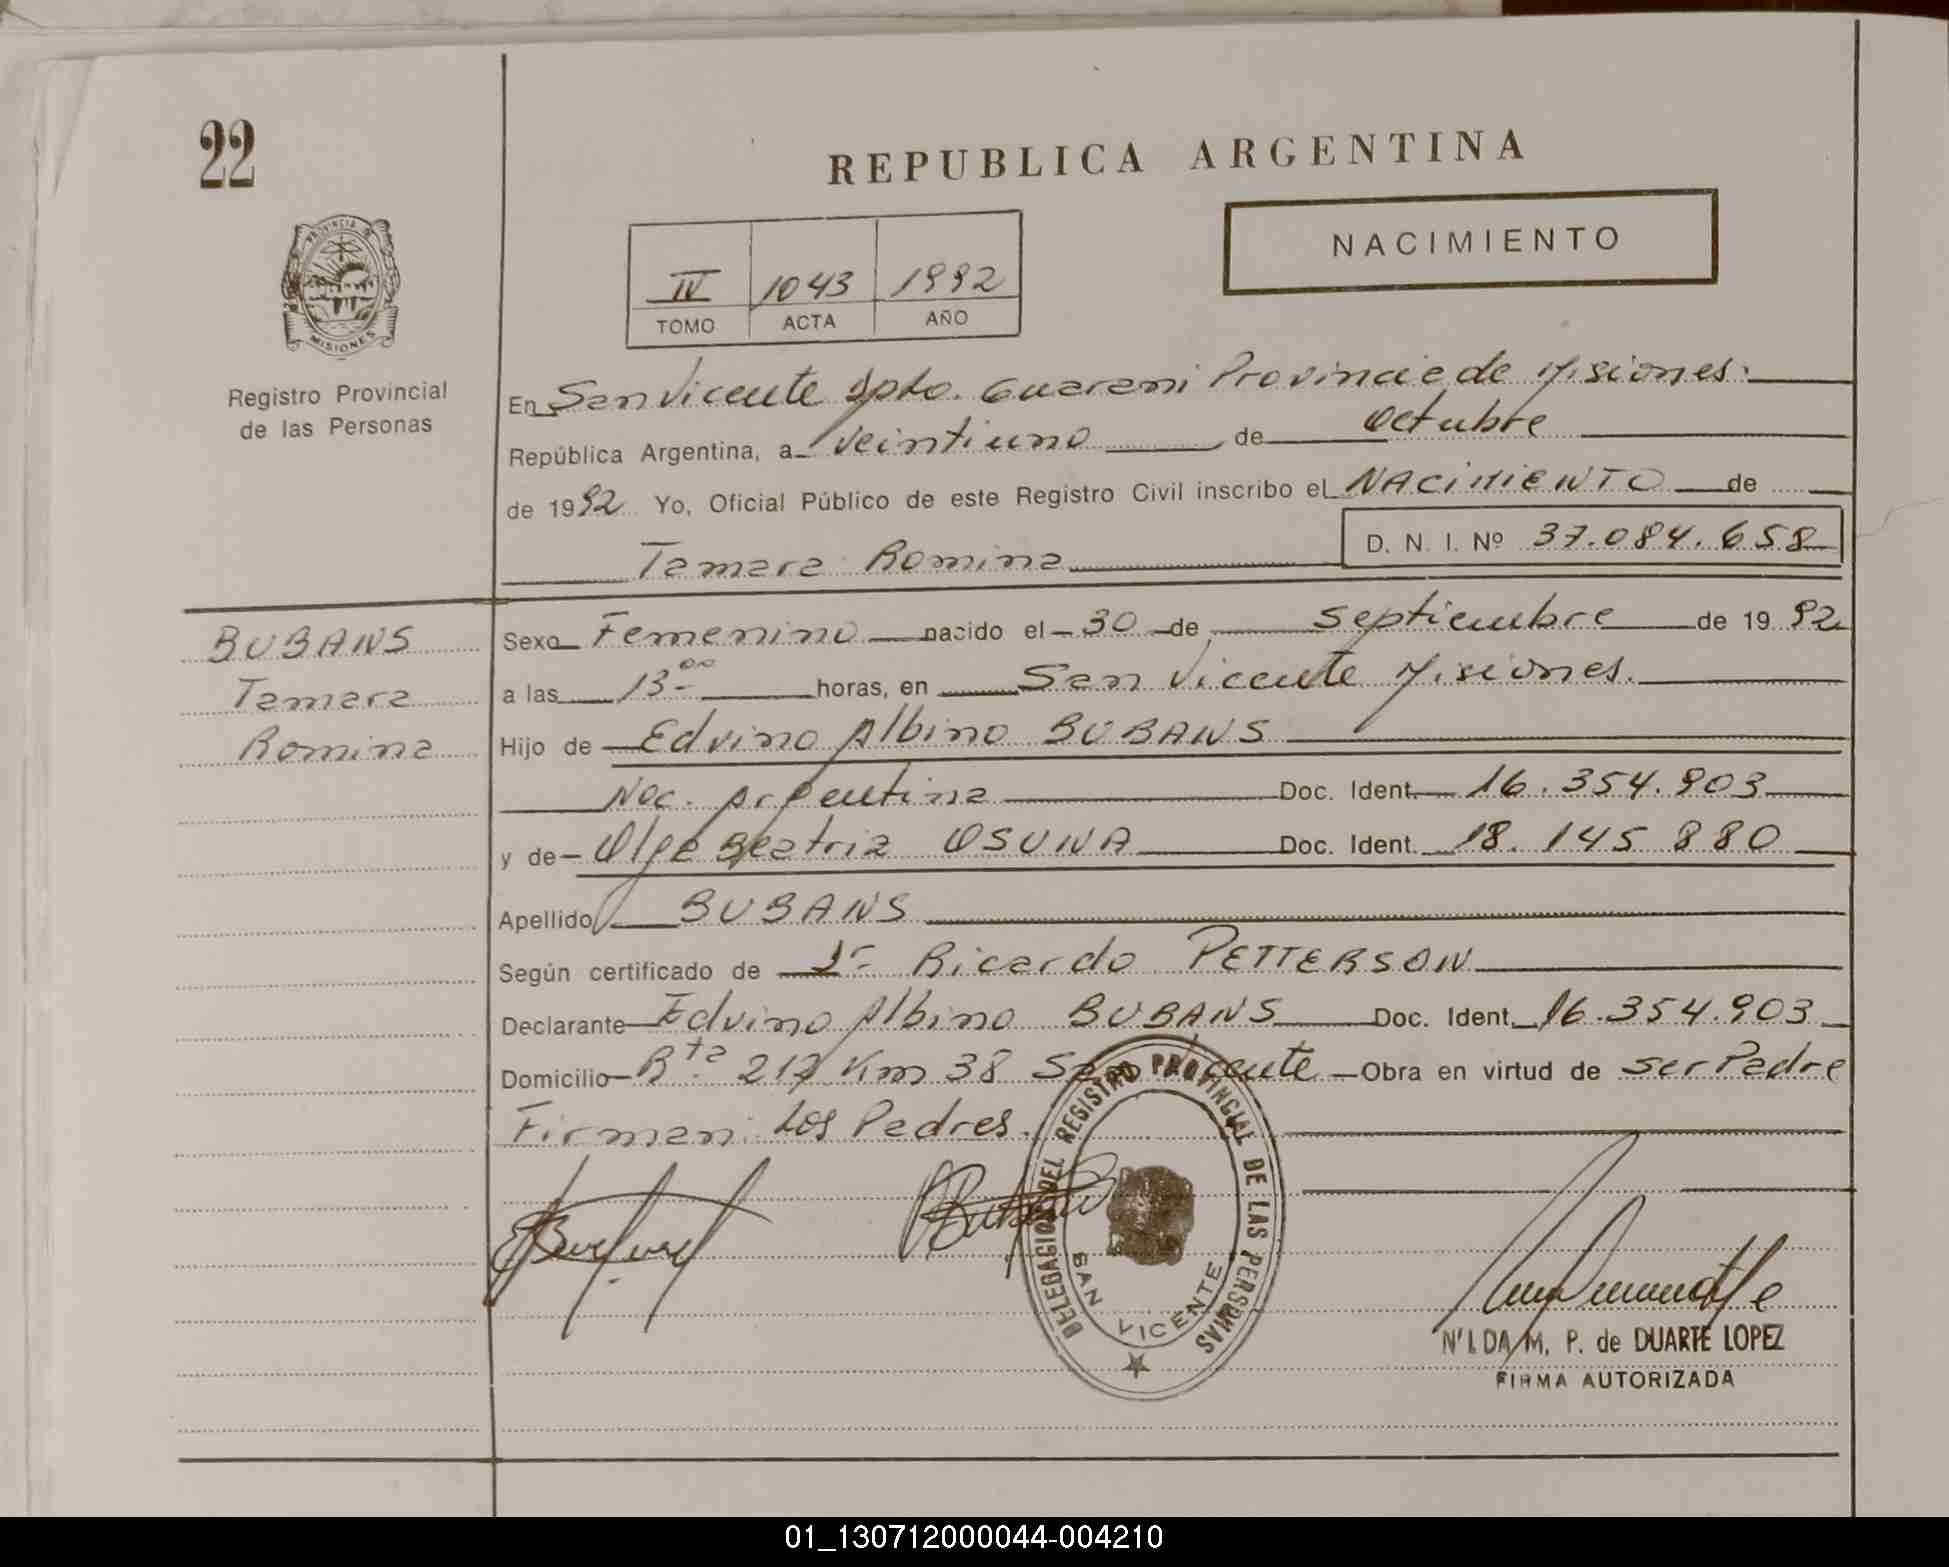 22
REPUBLICA ARGENTINA
PROVINCIA D
MISIONES
NACIMIENTO
IV 1043 1992
TOMO ACTA AÑO
Registro Provincial
de las Personas
En San Vicente Dpto. Guarani Provincia de Misiones.
República Argentina, a veintiuno de Octubre
de 1992 Yo, Oficial Público de este Registro Civil inscribo el NACIMIENTO de
Tamara Romina D. N. I. Nº 37.084.658
BUBANS
Tamara
Romina
Sexo Femenino nacido el 30 de Septiembre de 1992
a las 13-00 horas, en San Vicente Misiones.
Hijo de Edvino Albino BUBANS
Nac. Argentina Doc. Ident. 16.354.903
y de Olga Beatriz OSUNA Doc. Ident. 18.145.880
Apellido BUBANS
Según certificado de Dr. Ricardo PETTERSON
Declarante Edvino Albino BUBANS Doc. Ident. 16.354.903
Domicilio Rta 212 Km 38 San Vicente Obra en virtud de ser Padre
Firman: Los Padres.
DELEGACION DEL REGISTRO PROVINCIAL DE LAS PERSONAS
SAN VICENTE
NILDA M. P. de DUARTE LOPEZ
FIRMA AUTORIZADA
01_130712000044-004210